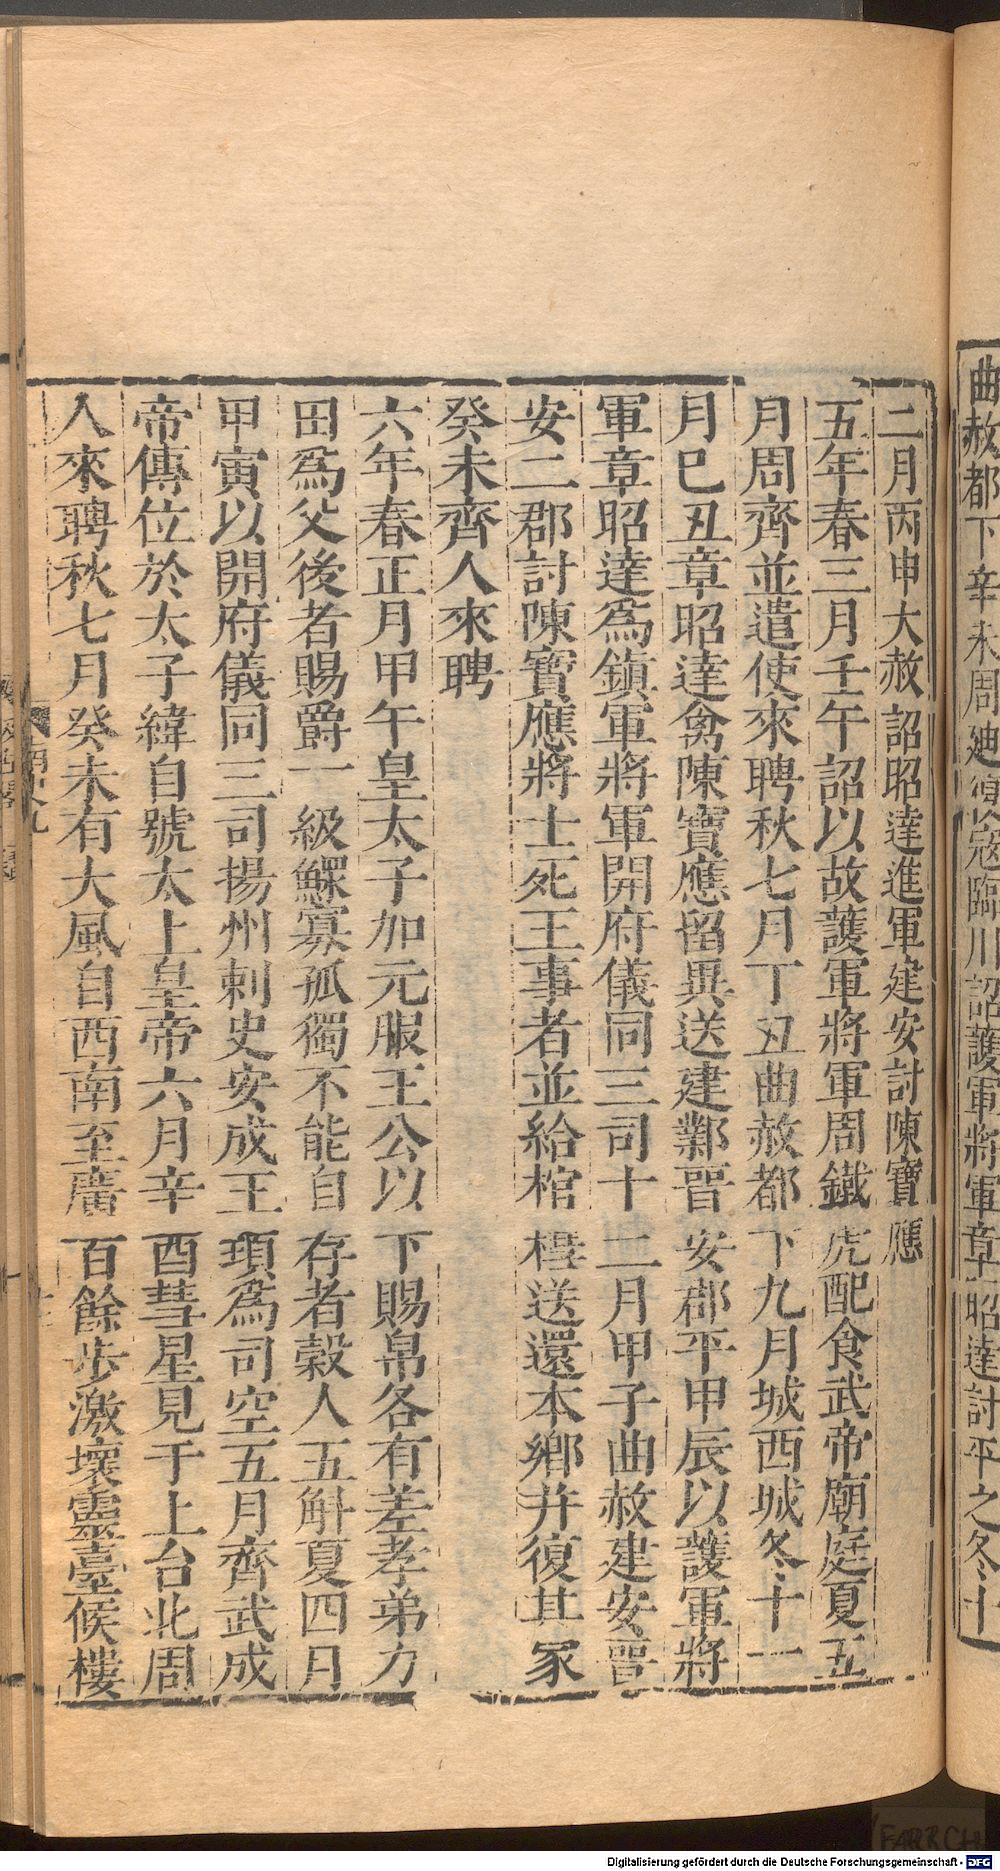 曲赦都下辛未周迪復寇臨川詔護軍將軍章昭達討平之冬十
二月丙申大赦詔昭達進軍建安討陳寶應
五年春三月壬午詔以故護軍將軍周鐵虎配食武帝廟庭夏五
月周齊並遣使來聘秋七月丁丑曲赦都下九月城西城冬十一
月巳丑章昭達禽陳寶應留異送建鄴晉安郡平甲辰以護軍將
軍章昭達爲鎮軍將軍開府儀同三司十二月甲子曲赦建安晉
安二郡討陳寶應將士死王事者並給棺槥送還本鄉并復其家
癸未齊人來聘
六年春正月甲午皇太子加元服王公以下賜帛各有差孝弟力
田爲父後者賜爵一級鰥寡孤獨不能自存者穀人五斛夏四月
甲寅以開府儀同三司揚州刺史安成王頊爲司空五月齊武成
帝傳位於太子緯自號太上皇帝六月辛酉彗星見于上台北周
人來聘秋七月癸未有大風自西南至廣百餘步激壞靈臺候樓
南史九
Digitalisierung gefördert durch die Deutsche Forschungsgemeinschaft - DFG